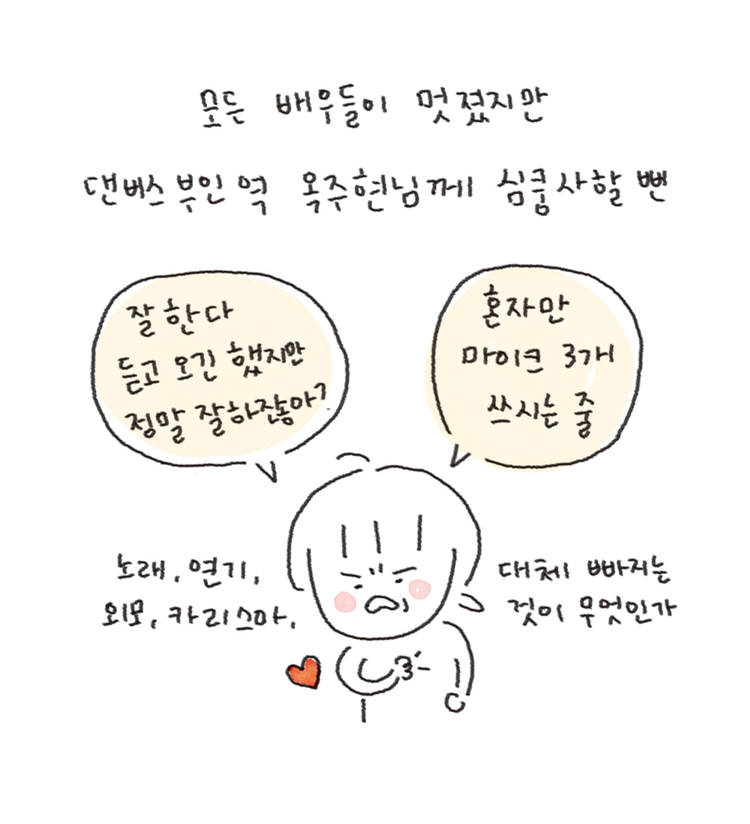 모든 배우들이 멋졌지만
댄버스 부인 역 옥주현님께 심쿵사할 뻔
잘 한다
듣고 오긴 했지만
정말 잘하잖아?
혼자만
마이크 3개
쓰시는 줄
노래, 연기,
외모, 카리스마,
대체 빠지는
것이 무엇인가